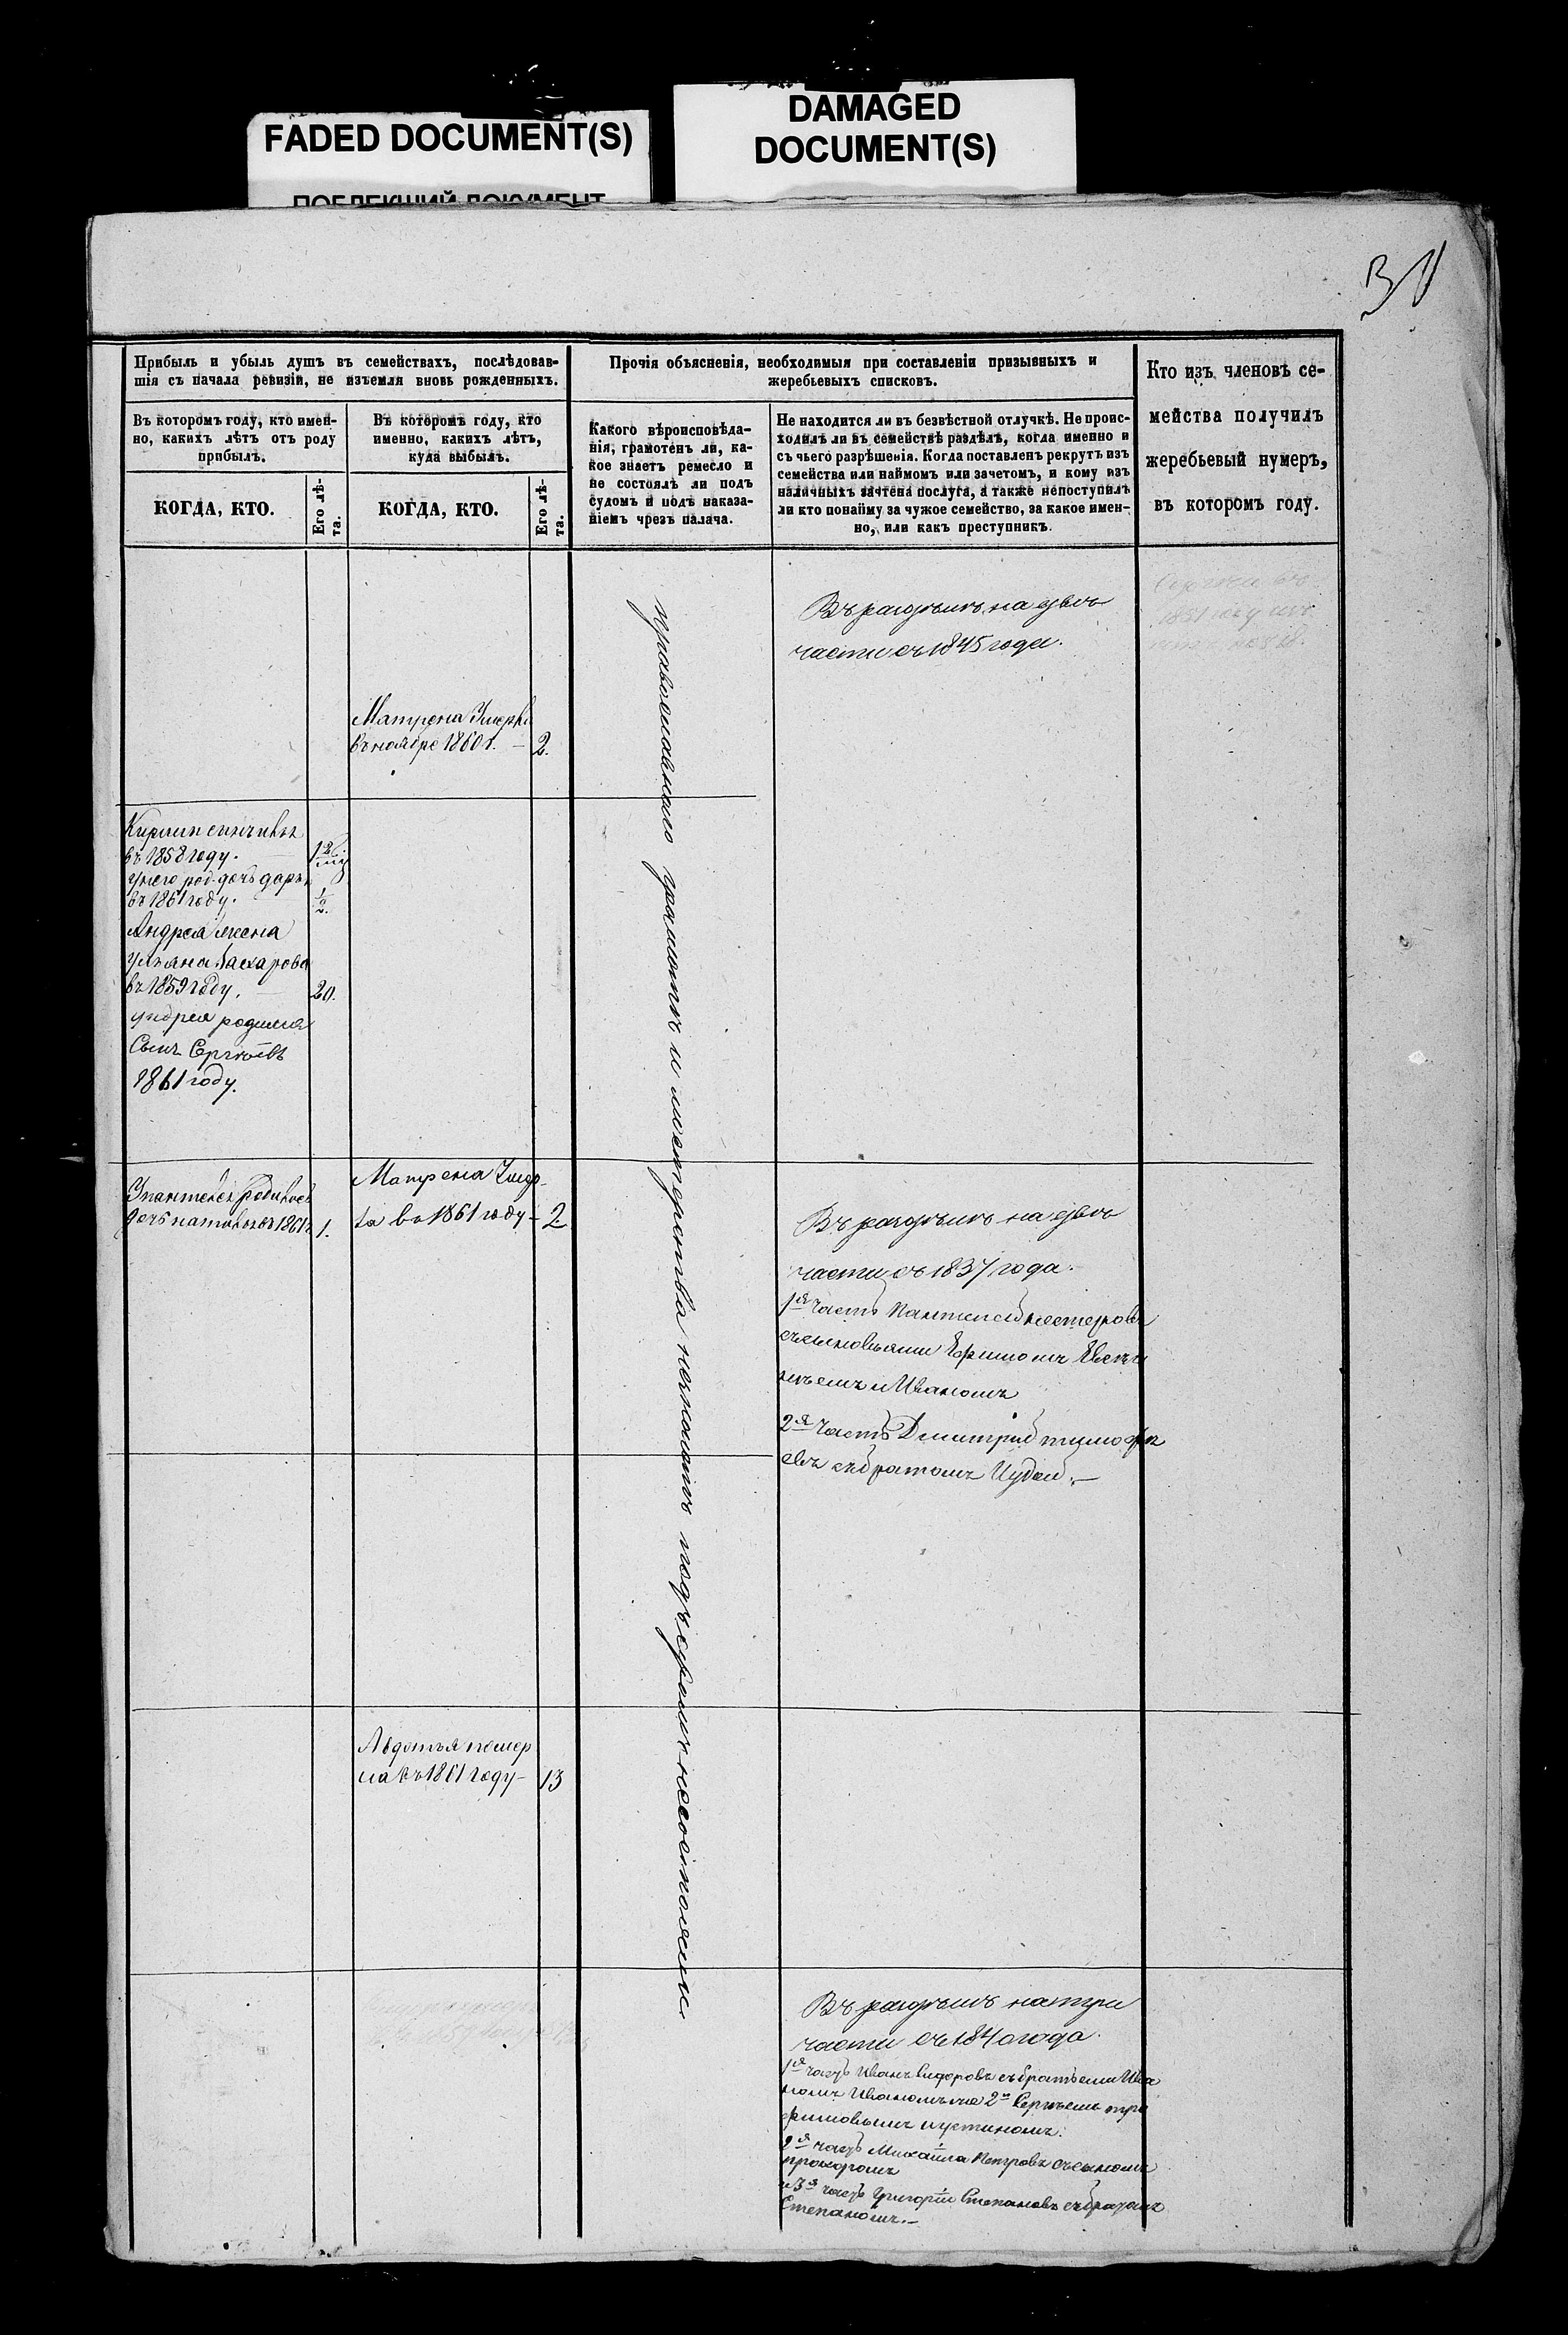 FADED DOCUMENT(S)
DAMAGED
DOCUMENT(S)
ПОБЛЕКШИЙ ДОКУМЕНТ
31
Прибыль и убыль душъ въ семействахъ, послѣдовав-
шія съ начала ревизіи, не изъемля вновь рожденныхъ.
Въ которомъ году, кто имен-
но, какихъ лѣтъ отъ роду
прибылъ.
КОГДА, КТО.
Его лѣ-
та.
Въ которомъ году, кто
именно, какихъ лѣтъ,
куда выбылъ.
КОГДА, КТО.
Его лѣ-
та.
Прочія объясненія, необходимыя при составленіи призывныхъ и
жеребьевыхъ списковъ.
Какого вѣроисповѣда-
нія, грамотенъ ли, ка-
кое знаетъ ремесло и
не состоялъ ли подъ
судомъ и подъ наказа-
ніемъ чрезъ палача.
Не находится ли въ безвѣстной отлучкѣ. Не проис-
ходилъ ли въ семействѣ раздѣлъ, когда именно и
съ чьего разрѣшенія. Когда поставленъ рекрутъ изъ
семейства или наймомъ или зачетомъ, и кому изъ
наличныхъ зачтена послуга, а также непоступилъ
ли кто понайму за чужое семейство, за какое имен-
но, или какъ преступникъ.
Кто изъ членовъ се-
мейства получилъ
жеребьевый нумеръ,
въ которомъ году.
Въ раздѣлѣ на двѣ
части съ 1845 года.
Матрена Умерла
въ ноябре 1860 г. — 2.
православнаго грамотѣ и мастерства незнаютъ подъ судомъ несостояли
Кирилл
въ 1858 году.
у него род. дочь Дарья
въ 1861 году. 1/2.
Андрея жена
Ульяна Захарова
въ 1859 году. — 20.
у Андрея родился
Сынъ Сергѣй въ
1861 году.
дочь въ 1861 г. 1.
Матрена Умер-
ла въ 1861 году — 2.
Въ раздѣлѣ на двѣ
части съ 1837 года.
1я часть Пантелей Нестеровъ
съ сыновьями Ефимомъ
и Иваномъ
2я часть Дмитрий Тимофе
евъ съ братомъ Иудой. —
Авдотья помер
ла въ 1861 году — 13
Въ раздѣлѣ на три
части съ 1840 года.
1я часть Иванъ Сидоровъ съ братьями Ива
номъ 2м Сергѣемъ Тро
фимовымъ и Устиномъ.
2я часть Михайла Петровъ съ сыномъ
Прохоромъ
и 3я часть Григорій Степановъ съ братомъ
Степаномъ. —